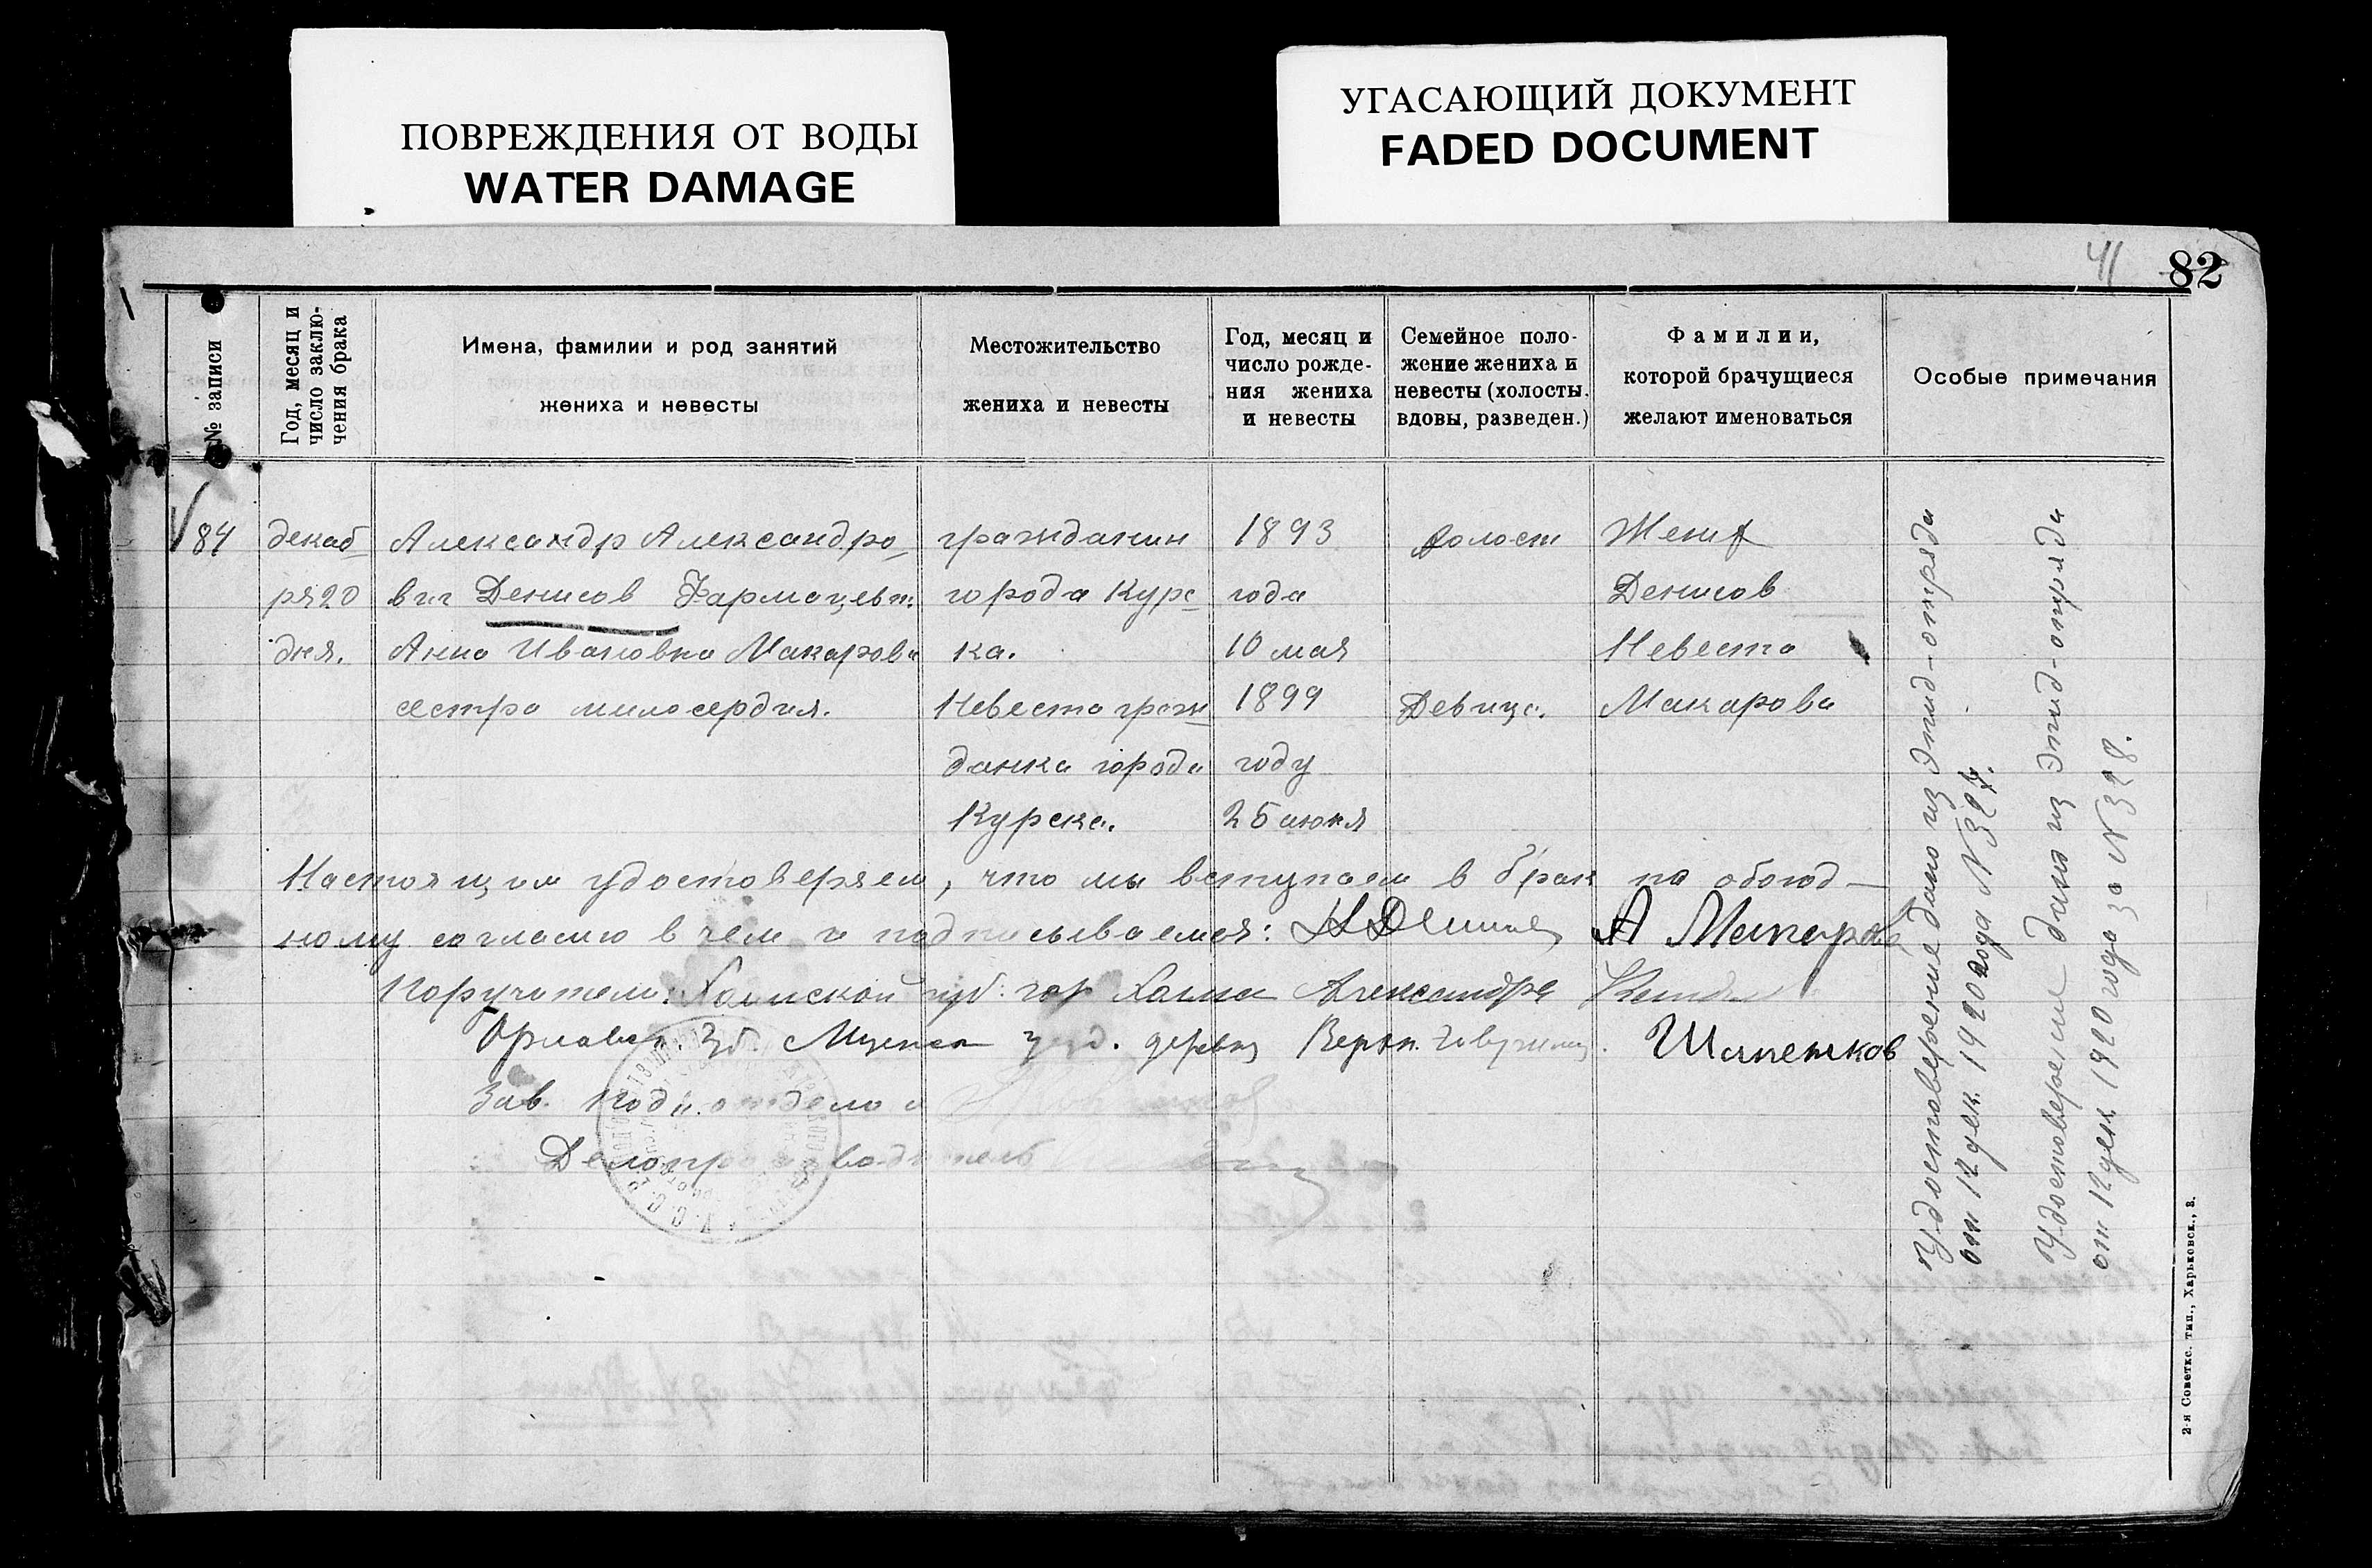 ПОВРЕЖДЕНИЯ ОТ ВОДЫ
WATER DAMAGE
УГАСАЮЩИЙ ДОКУМЕНТ
FADED DOCUMENT
41 82
№ записи
Год, месяц и
число заклю-
чения брака
Имена, фамилии и род занятий
жениха и невесты
Местожительство
жениха и невесты
Год, месяц и
число рожде-
ния жениха
и невесты
Семейное поло-
жение жениха и
невесты (холосты,
вдовы, разведен.)
Фамилии,
которой брачущиеся
желают именоваться
Особые примечания
84
декаб-
ря 20
дня.
Александр Александро-
вич Денисов Фармацевт.
Анна Ивановна Макарова
сестра милосердия.
гражданин
города Курс-
ка.
Невеста граж-
данка города
Курска.
1893
года
10 мая
1899
году
25 июня
Холост
Девица.
Жених
Денисов
Невеста
Макарова
Удостоверение дано из Эпид-отряда
от 12 дек. 1920 года N 327.
Удостоверение дано из Эпид-отряда
от 12 дек. 1920 года за N 328.
Настоящим удостоверяем, что мы вступаем в брак по обоюд-
ному согласию в чем и подписываемся: А Денисов А Макаров
Поручители: губ. гор. Александра
Орловск. Гб. Мценск уезд. деревни Верхн. Шапетков
Зав. подотдела
Делопроизводитель
2-я Советск. тип., Харьковск., 3.